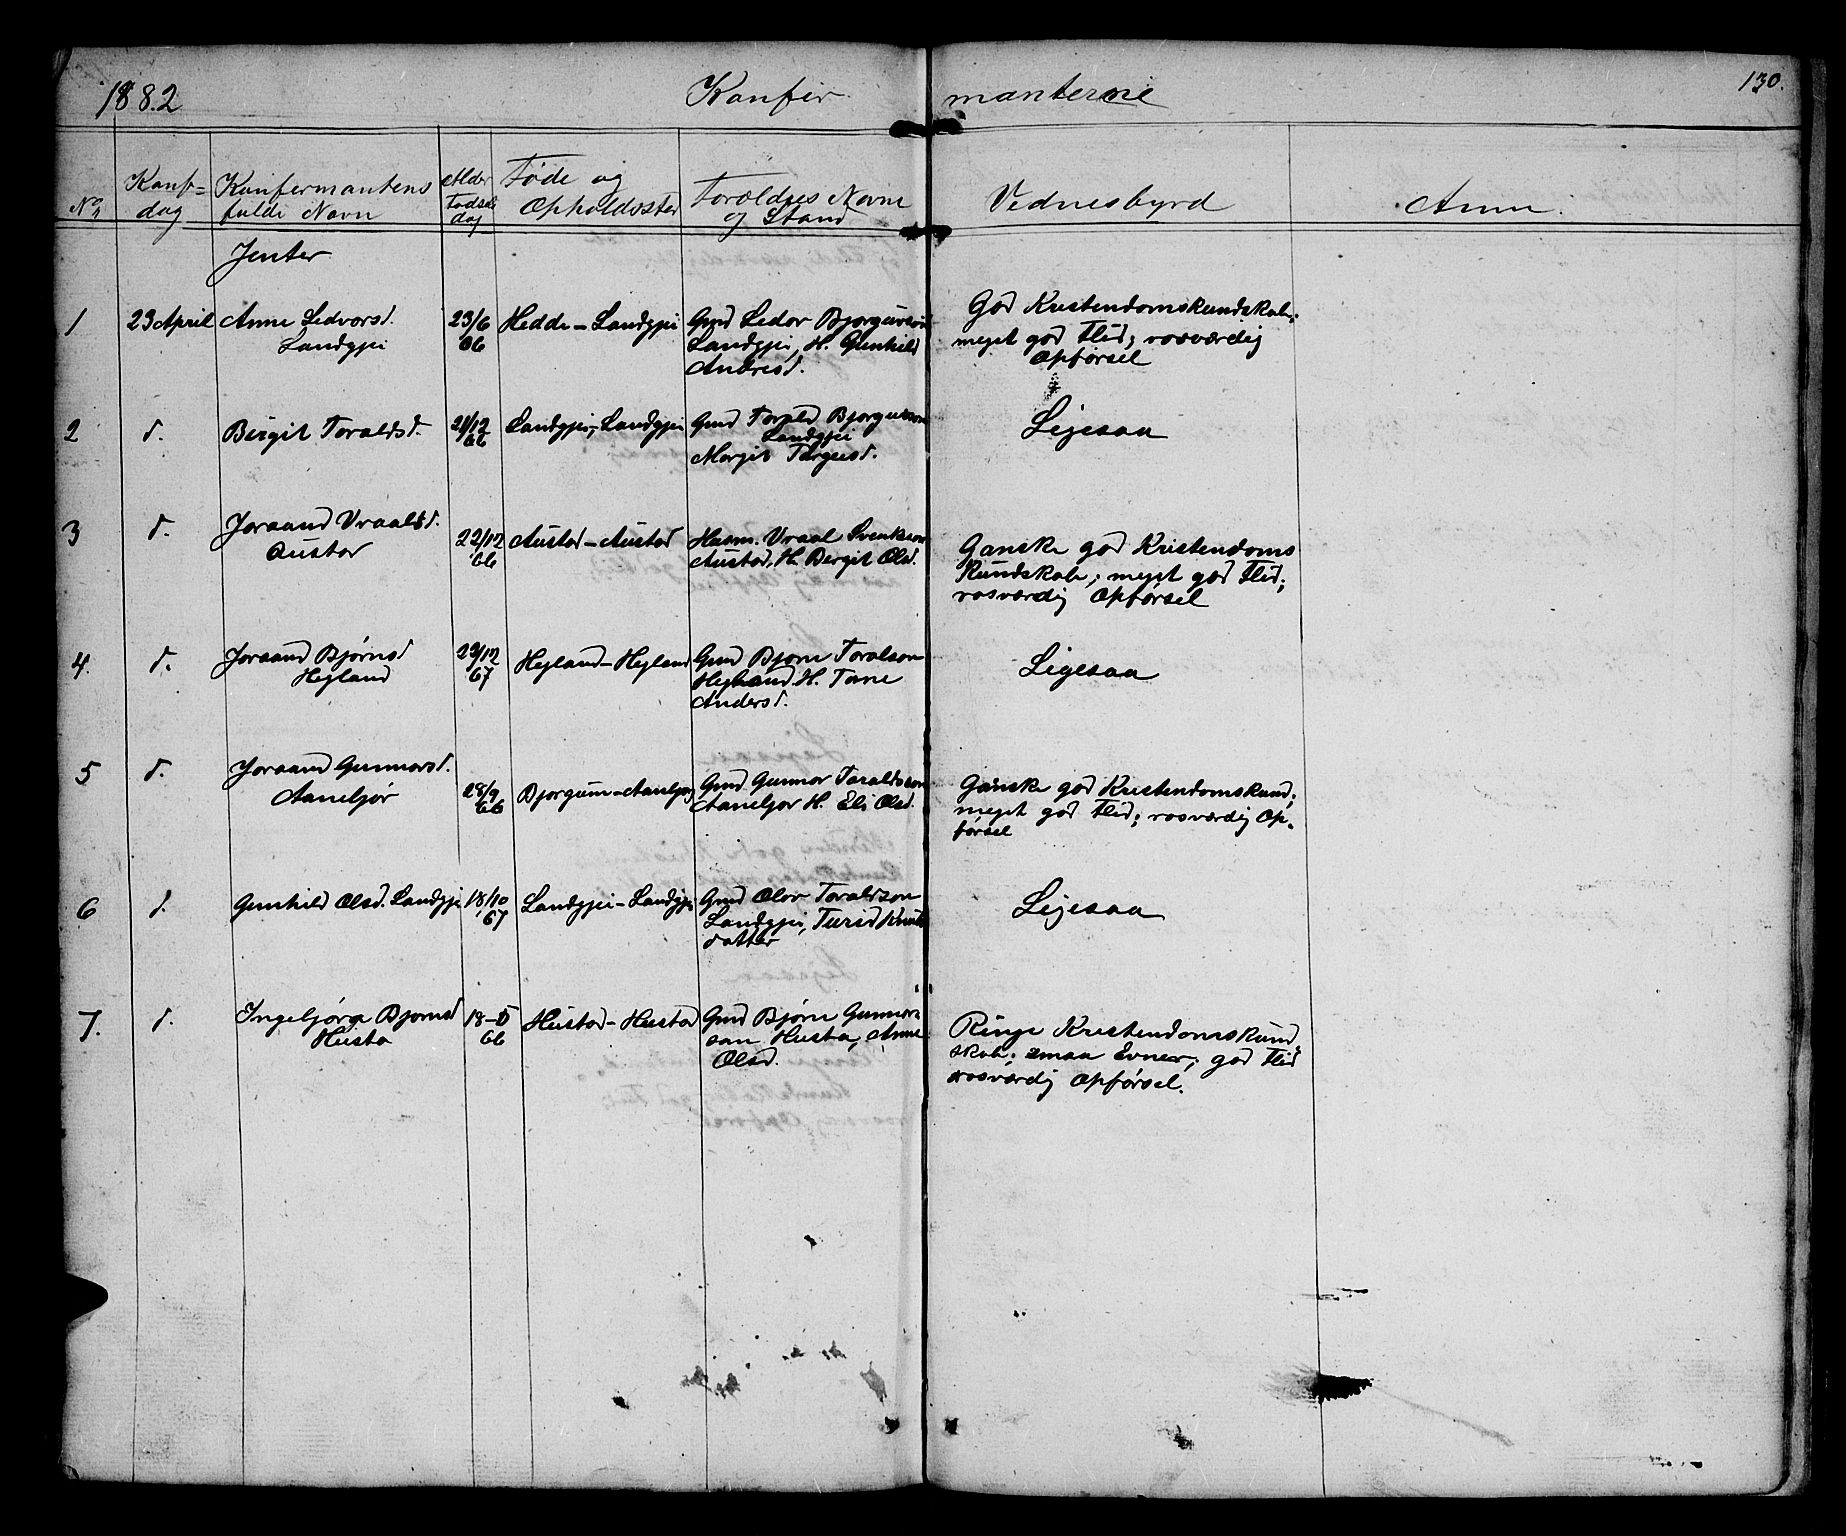 1882 Konfir manterne 130.
No Konf= dag Konfirmantens fulde Navn Alder Fødsels dag Føde og Opholdssted Forældres Navne og Stand Vidnesbyrd Anm.
Jenter
1 23 April Anne Ledvorsd. Landgjei 23/6 66 Hedde - Landgjei Gmd Ledor Bjorguvson Landgjei, H. Gunhild Andresd. God Kristendomskundskab; meget god Flid; rosværdig Opførsel
2 d. Birgit Toraldsd. 21/12 66 Landgjei, Landgjei Gmd Torald Bjorguvson Landgjei Margit Targusd. Ligesaa
3 d. Joraand Vraalsd. Austad 22/12 66 Austad - Austad Husm. Vraal Svenkson Austad, H. Bergit Olsd. Ganske god Kristendoms Kundskab; meget god Flid; rosværdig Opførsel
4. d. Joraand Bjørnsd Hegland 23/12 67 Hegland - Hegland Gmd Bjørn Toralson Hegland H. Tone Andersd. Ligesaa
5 d. Joraand Gunnarsd. Aaneljør 28/9 66 Bjorgum - Aaneljor Gmd Gunnar Toraldsson Aaneljor H. Eli Olsd. Ganske god Kristendomskund; meget god Flid; rosværdig Op- førsel
6 d. Gunhild Olsd. Landgjei 18/10 67 Landgjei - Landgjei Gmd Olav Toraldson Landgjei, Turid Knuts datter Ligesaa
7. d. Ingebjørg Bjornsd Husta 18- 66 Hustad - Hustad Gmd Bjørn Gunnar- son Husta, Anne Olsd. Ringe Kristendomskund skab; smaa Evner; god Flid rosværdig Opførsel.